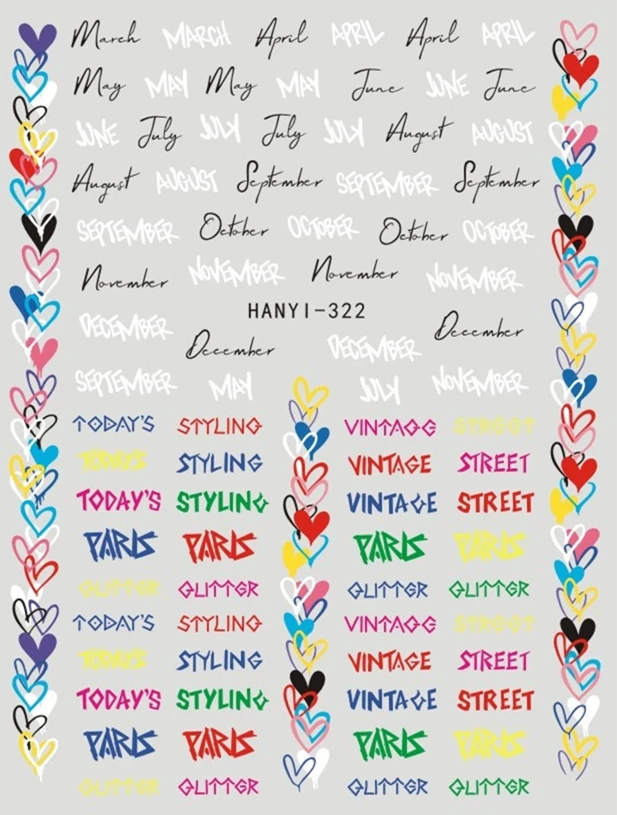 March MARCH April APRIL April APRIL
May MAY May MAY June JUNE June
JUNE July JULY July JULY August AUGUST
August AUGUST September SEPTEMBER September
SEPTEMBER October OCTOBER October OCTOBER
November NOVEMBER November NOVEMBER
HANYI-322
DECEMBER December DECEMBER December
SEPTEMBER MAY JULY NOVEMBER
TODAY'S STYLING VINTAGE STREET
TODAY'S STYLING VINTAGE STREET
TODAY'S STYLING VINTAGE STREET
PARIS PARIS PARIS PARIS
GLITTER GLITTER GLITTER GLITTER
TODAY'S STYLING VINTAGE STREET
TODAY'S STYLING VINTAGE STREET
TODAY'S STYLING VINTAGE STREET
PARIS PARIS PARIS PARIS
GLITTER GLITTER GLITTER GLITTER